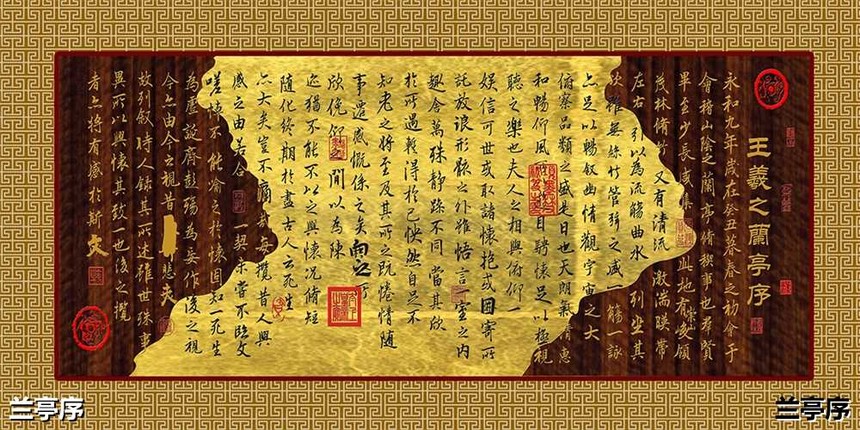 王羲之蘭亭序
永和九年歲在癸丑暮春之初會于
會稽山陰之蘭亭脩稧事也群賢
畢至少長咸集此地有崇山峻領
茂林脩竹又有清流激湍暎帶
左右引以為流觴曲水列坐其
次雖無絲竹管弦之盛一觴一詠
亦足以暢叙幽情觀宇宙之大
俯察品類之盛是日也天朗氣清惠
和暢仰風騁懷足以極視
聽之樂也夫人之相與俯仰一
娛信可世或取諸懷抱或因寄所
託放浪形骸之外雖悟言一室之內
趣舍萬殊靜躁不同當其欣
於所遇輒得於己快然自足不
知老之將至及其所之既惓情隨
事遷感慨係之矣向之所
欣俛仰之間以為陳
迹猶不能不以之興懷況脩短
隨化終期於盡古人云死生
亦大矣豈不痛哉每攬昔人興
感之由若合一契未嘗不臨文
嗟悼不能喻之於懷固知一死生
為虛誕齊彭殤為妄作後之視
今亦由今之視昔悲夫
故列叙時人錄其所述雖世殊事
異所以興懷其致一也後之攬
者亦將有感於斯文
兰亭序
兰亭序